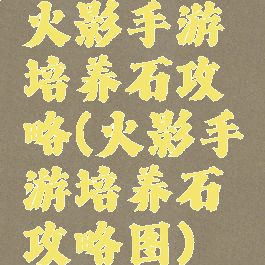 火影手游
培养石攻
略(火影手
游培养石
攻略图)